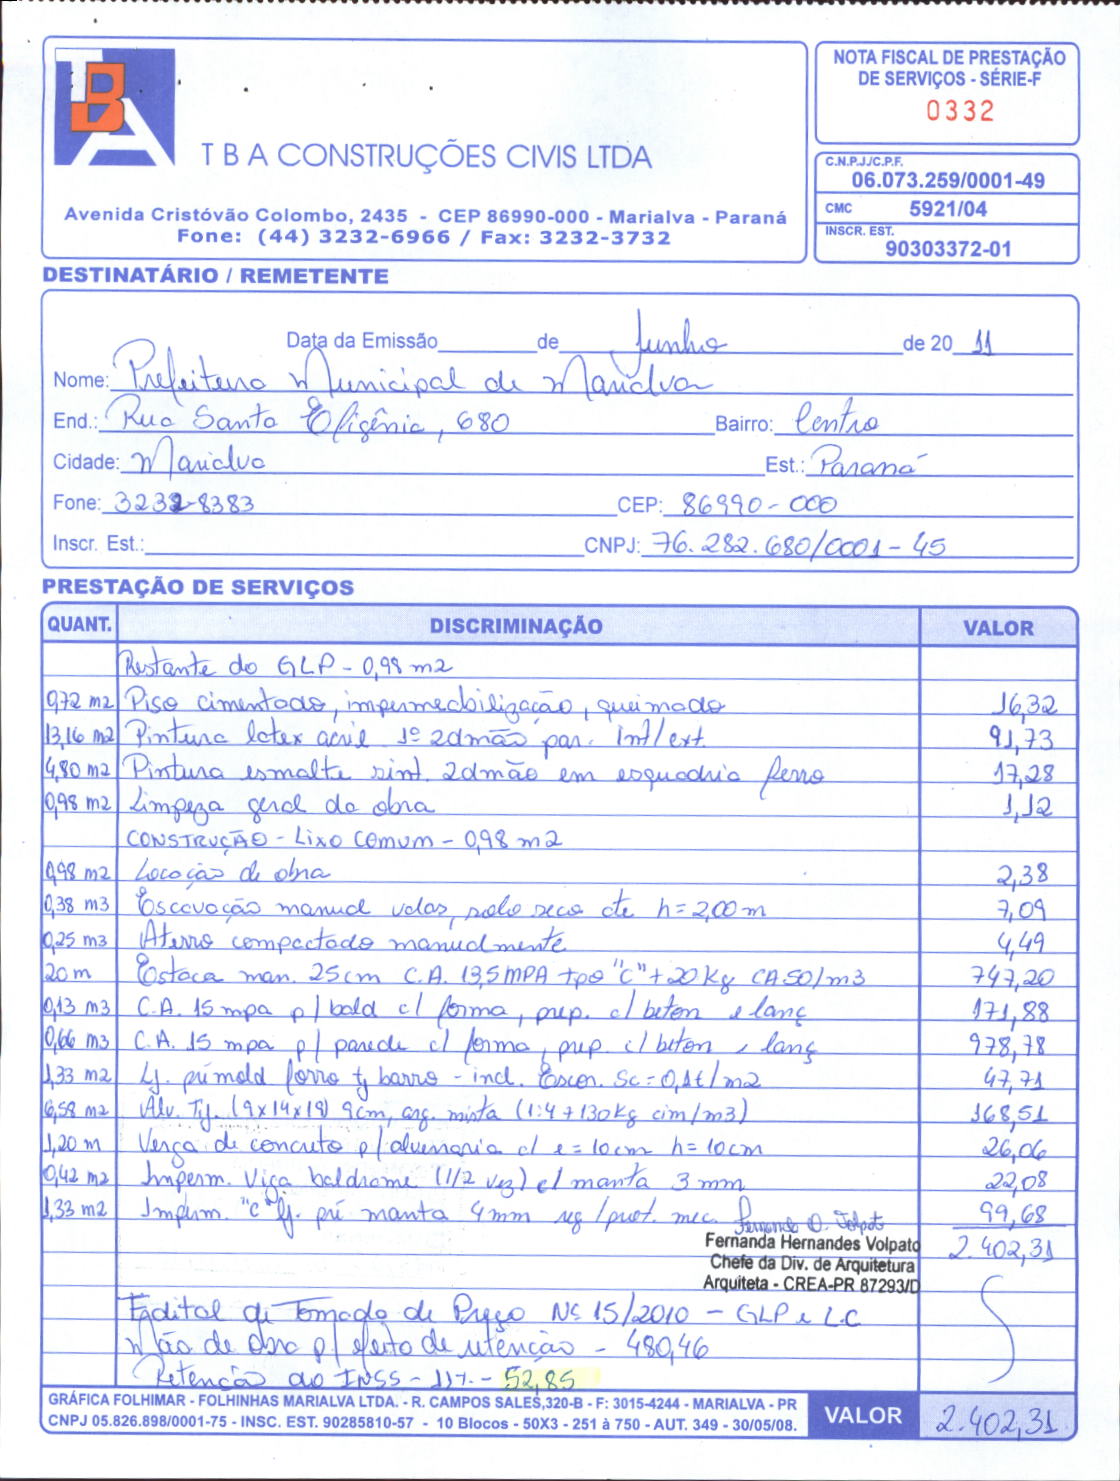 TBA
NOTA FISCAL DE PRESTAÇÃO
DE SERVIÇOS - SÉRIE-F
0332
T B A CONSTRUÇÕES CIVIS LTDA
C.N.P.J./C.P.F.
06.073.259/0001-49
CMC 5921/04
INSCR. EST.
90303372-01
Avenida Cristóvão Colombo, 2435 - CEP 86990-000 - Marialva - Paraná
Fone: (44) 3232-6966 / Fax: 3232-3732
DESTINATÁRIO / REMETENTE
Data da Emissão de Junho de 20 11
Nome: Prefeitura Municipal de Marialva
End.: Rua Santa Efigênia, 680 Bairro: Centro
Cidade: Marialva Est.: Paraná
Fone: 3232-8383 CEP: 86990-000
Inscr. Est.: CNPJ: 76.282.680/0001-45
PRESTAÇÃO DE SERVIÇOS
QUANT. DISCRIMINAÇÃO VALOR
Restante do GLP - 0,98 m2
0,72 m2 Piso cimentado, impermeabilização, queimado 16,32
13,16 m2 Pintura latex acril 1º 2dmão par. int/ext. 91,73
4,80 m2 Pintura esmalte sint. 2dmão em esquadria ferro 17,28
0,98 m2 Limpeza geral da obra 1,12
CONSTRUÇÃO - LIXO COMUM - 0,98 m2
0,98 m2 Locação de obra 2,38
0,38 m3 Escavação manual valas, solo seco ate h=2,00m 7,09
0,25 m3 Aterro compactado manualmente 4,49
20 m Estaca man. 25cm C.A. 13,5MPA tpo "C" + 20 Kg CA50/m3 747,20
0,13 m3 C.A. 15 mpa p/ bald c/ forma, prep. c/ beton e lanç 171,88
0,66 m3 C.A. 15 mpa p/ parede c/ forma, prep. c/ beton e lanç 978,78
1,33 m2 Lj. prémold forro tj barro - incl. Escor. Sc=0,1t/m2 47,71
6,58 m2 Alv. Tij. (9x14x19) 9cm, arg. mista (1:4+130kg cim/m3) 168,51
1,20 m Verga de concreto p/ alvenaria c/ e=10cm h=10cm 26,06
0,42 m2 Imperm. Viga baldrame (1/2 vez) c/ manta 3 mm 22,08
1,33 m2 Imperm. "C" lj. pré manta 4mm reg/prot. mec. 99,68
Fernanda H. Volpato
Fernanda Hernandes Volpato 2.402,31
Chefe da Div. de Arquitetura
Arquiteta - CREA-PR 87293/D
Edital de Tomada de Preço Nº 15/2010 - GLP e L.C
Mão de obra p/ efeito de retenção - 480,46
Retenção do INSS - 11%. - 52,85
GRÁFICA FOLHIMAR - FOLHINHAS MARIALVA LTDA. - R. CAMPOS SALES,320-B - F: 3015-4244 - MARIALVA - PR
CNPJ 05.826.898/0001-75 - INSC. EST. 90285810-57 - 10 Blocos - 50X3 - 251 à 750 - AUT. 349 - 30/05/08.
VALOR 2.402,31